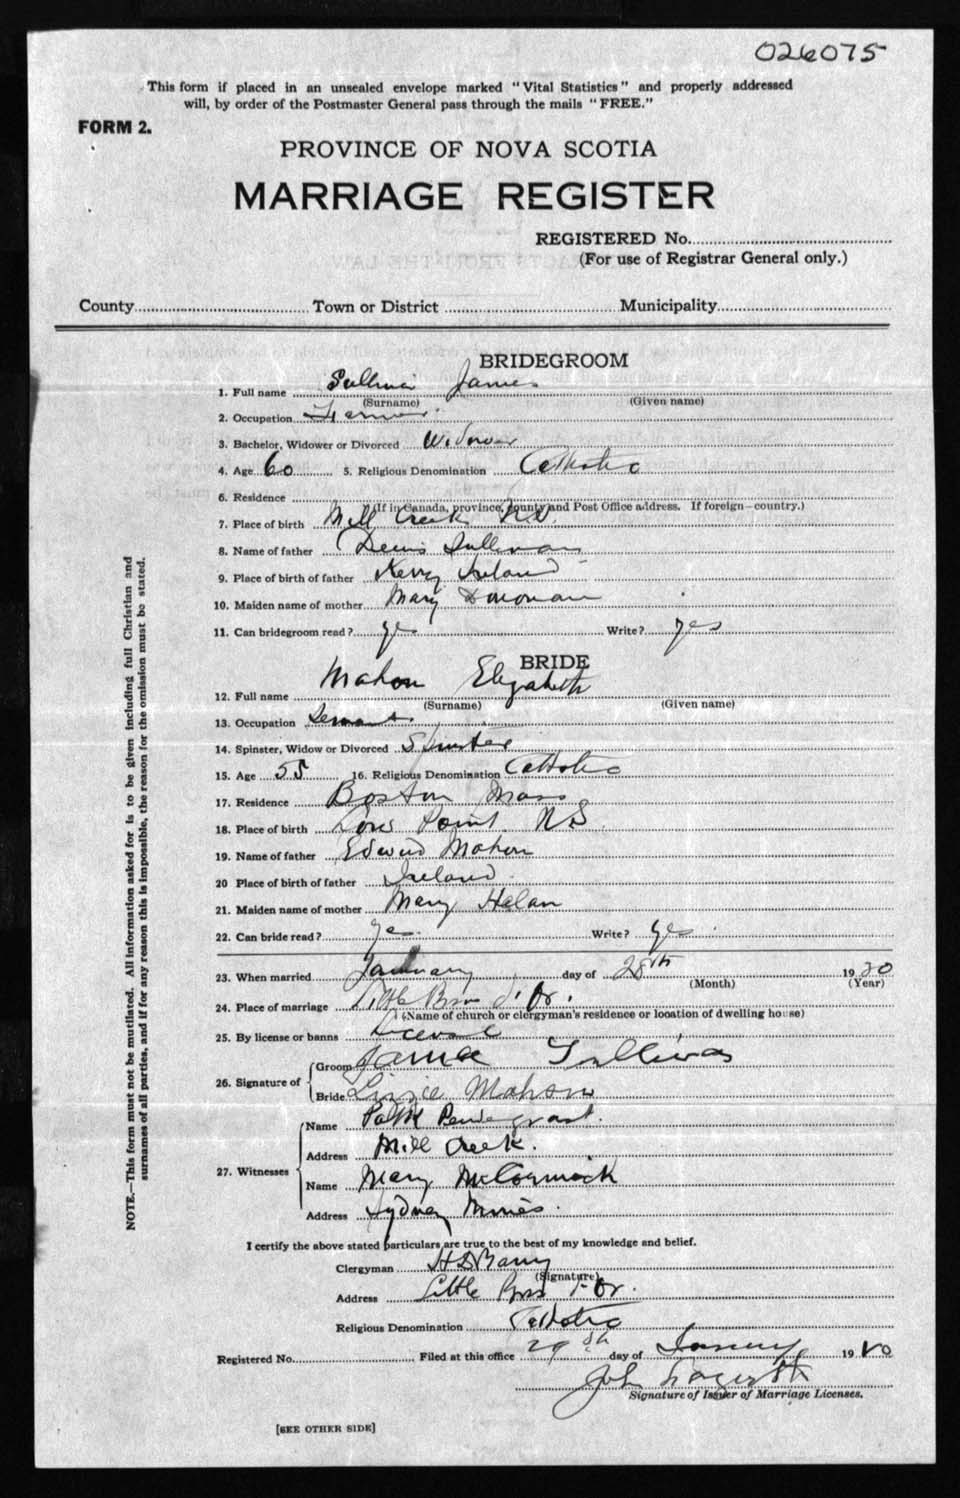 026075
This form if placed in an unsealed envelope marked "Vital Statistics" and properly addressed
will, by order of the Postmaster General pass through the mails "FREE."
FORM 2.
PROVINCE OF NOVA SCOTIA
MARRIAGE REGISTER
REGISTERED No.
(For use of Registrar General only.)
County Town or District Municipality
BRIDEGROOM
1. Full name Sullivan James
(Surname) (Given name)
2. Occupation Farmer
3. Bachelor, Widower or Divorced Widower
4. Age 60 5. Religious Denomination Catholic
6. Residence
(If in Canada, province, county and Post Office address. If foreign—country.)
7. Place of birth Mill Creek N.S.
8. Name of father Denis Sullivan
9. Place of birth of father Kerry Ireland
10. Maiden name of mother Mary Donovan
11. Can bridegroom read? yes Write? yes
BRIDE
12. Full name Mahon Elizabeth
(Surname) (Given name)
13. Occupation Servant
14. Spinster, Widow or Divorced Spinster
15. Age 55 16. Religious Denomination Catholic
17. Residence Boston Mass
18. Place of birth Point N.S.
19. Name of father Edward Mahon
20 Place of birth of father Ireland
21. Maiden name of mother Mary
22. Can bride read? yes Write? yes
23. When married January day of 28th 1920
(Month) (Year)
24. Place of marriage Little Bras d'Or.
(Name of church or clergyman's residence or location of dwelling house)
25. By license or banns License
26. Signature of Groom James Sullivan
Bride Lizzie Mahon
27. Witnesses Name
Address Mill Creek.
Name Mary McCormack
Address Sydney Mines.
I certify the above stated particulars are true to the best of my knowledge and belief.
Clergyman
(Signature)
Address Little Bras d'Or.
Religious Denomination Catholic
Registered No. Filed at this office 29th day of January 1920
John
Signature of Issuer of Marriage Licenses.
[SEE OTHER SIDE]
NOTE.—This form must not be mutilated. All information asked for is to be given including full Christian and
surnames of all parties, and if for any reason this is impossible, the reason for the omission must be stated.